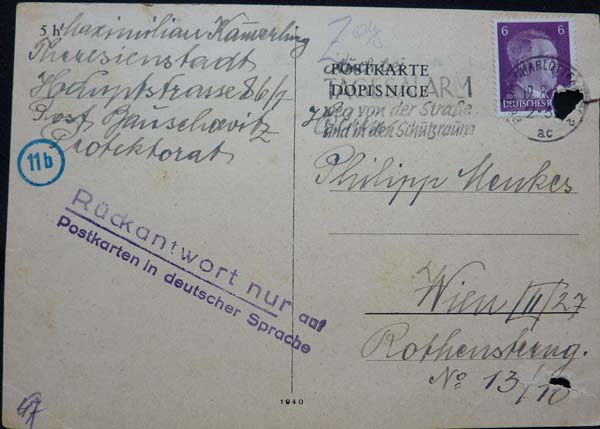 5 h Maximilian Kämerling
Theresienstadt
Hauptstrasse 86/I
Post Bauschowitz
Protektorat
11b
Rückantwort nur auf
Postkarten in deutscher Sprache
POSTKARTE
DOPISNICE
weg von der Straße
und in den Schutzraum
6 6
DEUTSCHES
CHARLOTTEN
ac
Philipp Menkes
Wien /II/27
No 13/10
1940